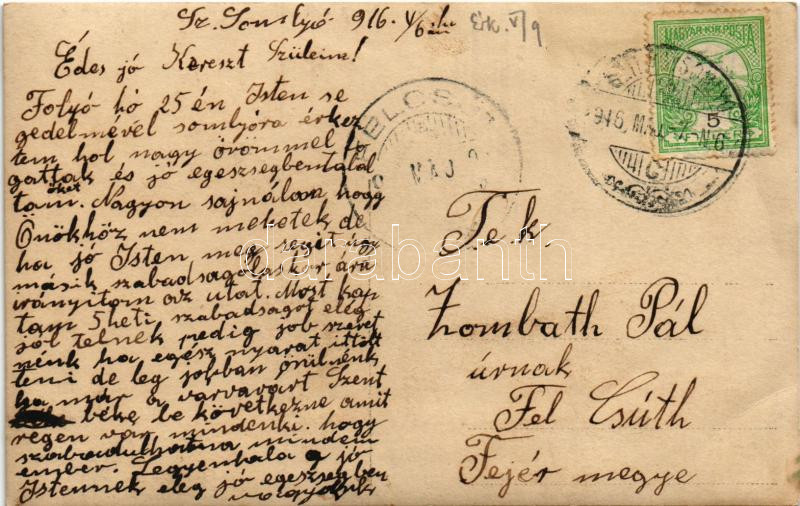 Sz. Somlyó 916. V/6 án
Érk. V/9
Édes jó Kereszt Szüleim!
Folyó hó 25 én Isten se
gedelmével somlyóra érkez
tem hol nagy örömmel fo
gattak és jó egeszsegbentalál
tam őket. Nagyon sajnálom hogy
Önökhöz nem mehetek de
ha jó Isten meg segit úgy
másik szabadságoláskor, ára
irányitom az utat. Most kap
tam 5 heti, szabadságot elég
jól telnek pedig job szeret
nénk ha egész nyarat ittölt
teni de leg jobban örülnénk
ha már a várvavárt Szent
béke be következne amit
regen vár mindenki. hogy
szabadulhatna minden
ember. Legyenhála a jó
Istennek elég jó egeszsegben
vagyunk
T e k
Zombath Pál
úrnak
Fel Csúth
Fejér megye
MAGYAR KIR. POSTA
5
916. MÁJ. N6
C
MÁJ
darabanth